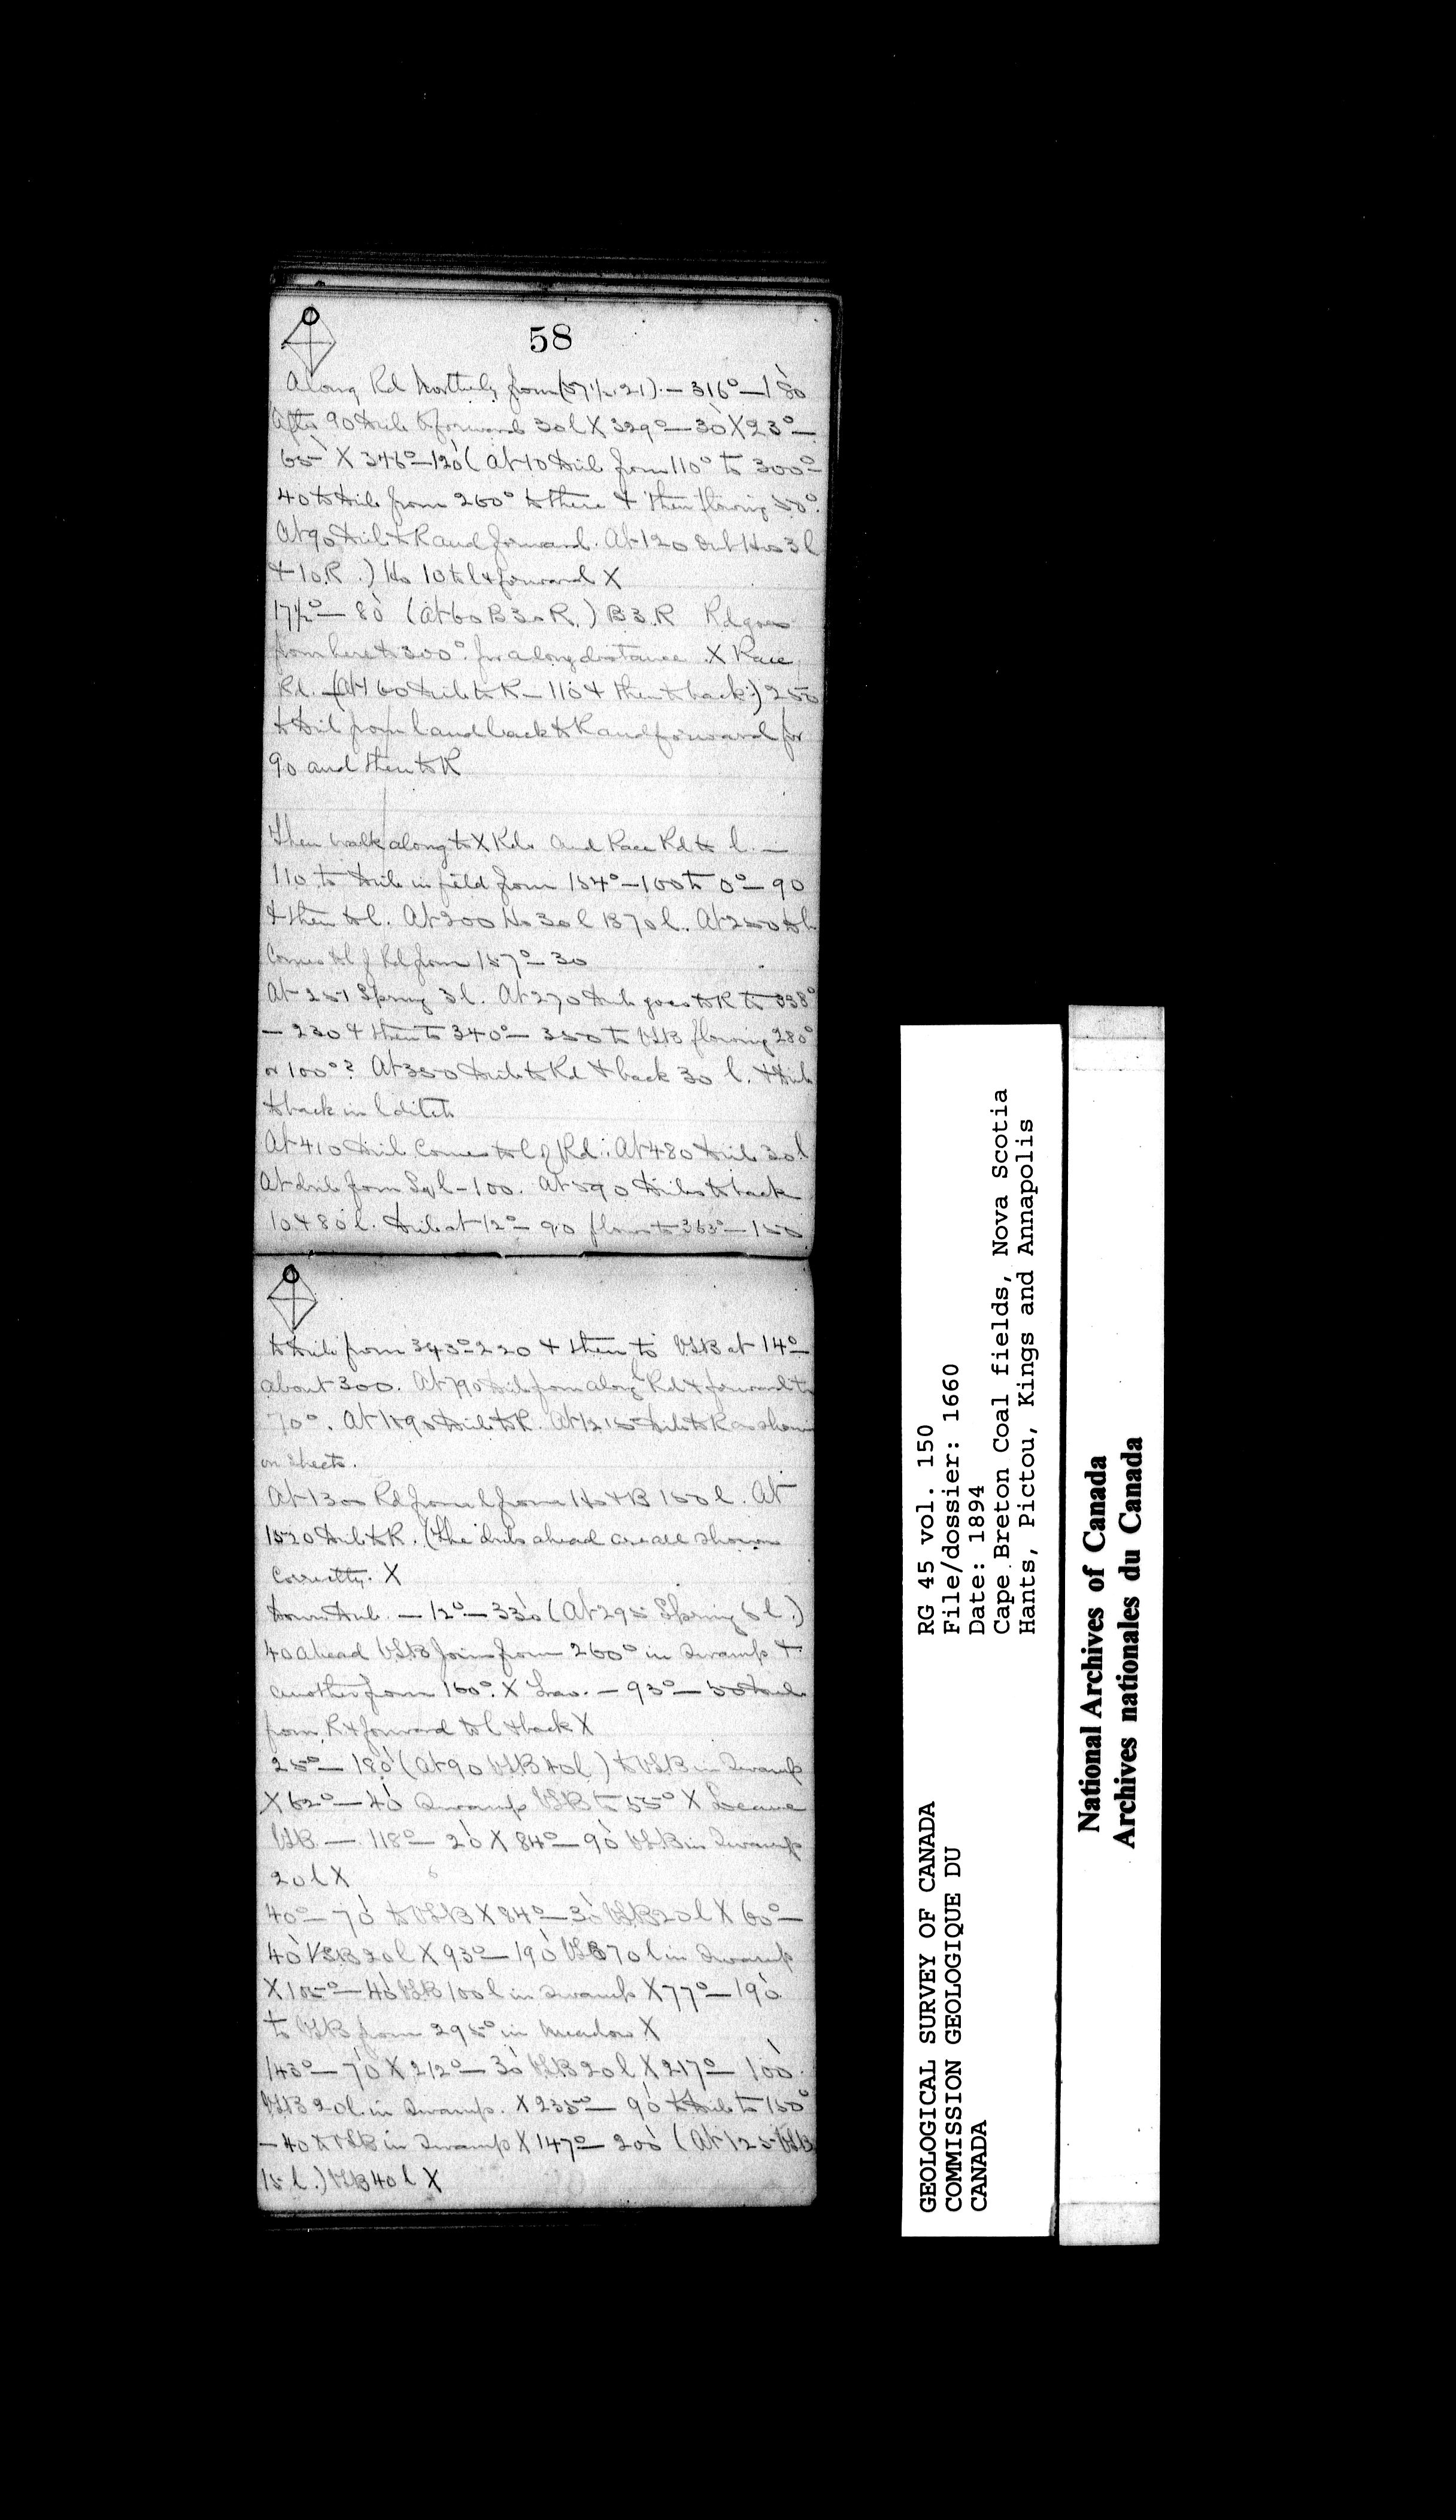 58
Along Rd Northerly from (57 1/2, 21). — 316° — 180
After 90 Drib & forward 30 l X 329° — 30 X 23° —
65 X 346° — 120 (At 10 Drib from 110° to 300° —
40 to Drib from 260° to there & then flowing 50°.
At 90 Drib to R and forward. At 120 Drib Ho 3 l
& 10 R.) Ho 10 to l & forward X
17 1/2° — 80 (At 60 B 30 R.) B 3 R Rd goes
from here to 300° for a long distance X Race
Rd. — (At 160 Drib to R — 110 & then to back.) 250
to Drib from l and back to R and forward for
90 and then to R
Then walk along to X Rds and Race Rd to l. —
110 to Drib in field from 154° — 100 to 0° — 90
& then to l. At 200 Ho 30 l B 70 l. At 250
Comes to l of Rd from 157° — 30
At 251 Spring 3 l. At 270 Drib goes to R to 338°
— 230 & then to 340° — 350 to VSB flowing 280°
or 100°? At 350 Drib to Rd & back 30 l. & Drib
to back in l ditch
At 410 Drib Comes to l of Rd. At 480 Drib 30 l
At Drib from Sq l — 100. At 590 Dribs to back
10 & 80 l. Drib at 12° — 90 flows to 353° — 150
to Drib from 343° — 220 & then to VSB at 14° —
about 300. At 790 Drib from along l Rd & forward to
70°. At 1190 Drib to R. At 1215 Drib to R as shown
on sheets.
At 1300 Rd from l from Ho & B 150 l. At
1520 Drib to R. (The dribs ahead are all shown
Correctly. X
Down Drib. — 12° — 330 (At 295 Spring 6 l.)
40 ahead VSB joins from 260° in Swamp &
another from 160°. X Trav. — 93° — 50 Drib
from R & forward to l & back X
25° — 180 (At 90 VSB 40 l) to VSB in Swamp
X 62° — 40 Swamp VSB to 55° X Leave
VSB — 118° — 20 X 84° — 90 VSB in Swamp
20 l X
40° — 70 to VSB X 84° — 30 VSB 20 l X 60° —
40 VSB 20 l X 93° — 190 VSB 70 l in Swamp
X 105° — 40 VSB 100 l in Swamp X 77° — 190
to VSB from 295° in Meadow X
143° — 70 X 212° — 30 VSB 20 l X 217° — 100
VSB 20 l. in Swamp. X 235° — 90 to Drib to 150°
— 40 to VSB in Swamp X 147° — 200 (At 125 VSB
15 l.) VSB 40 l X
GEOLOGICAL SURVEY OF CANADA
COMMISSION GEOLOGIQUE DU
CANADA
RG 45 vol. 150
File/dossier: 1660
Date: 1894
Cape Breton Coal fields, Nova Scotia
Hants, Pictou, Kings and Annapolis
National Archives of Canada
Archives nationales du Canada